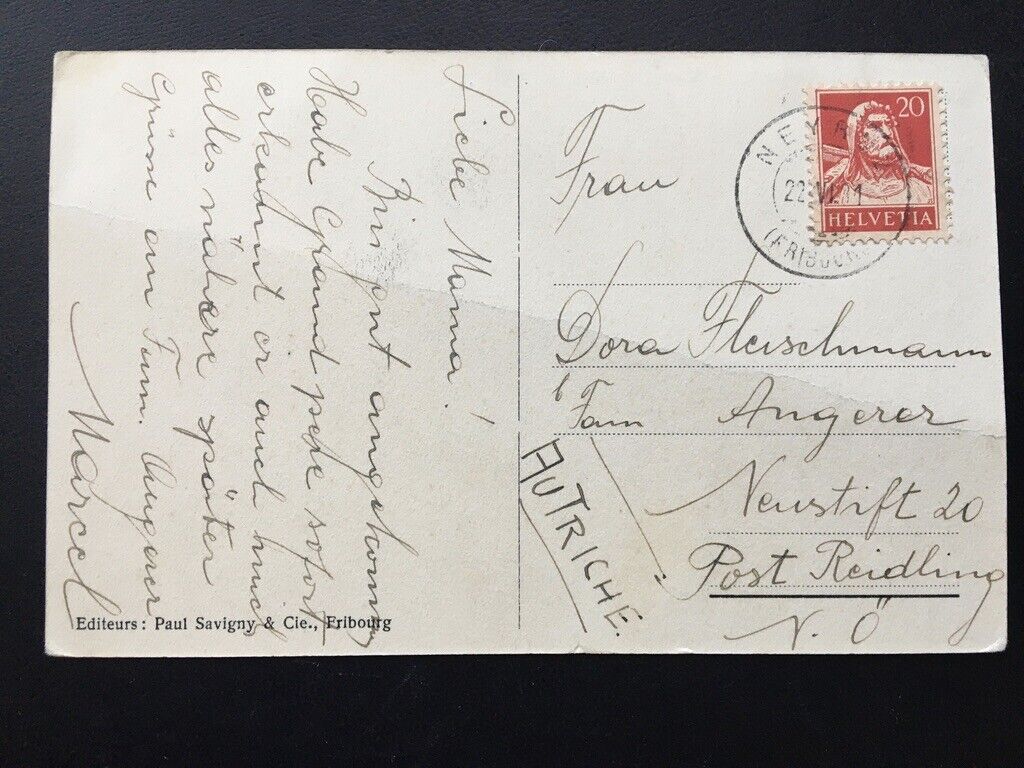 Liebe Mama!
Bin gut angekommen
Habe Grand père sofort
erkannt er auch mich
alles nähere später
Grüsse an Fam. Angerer
Marcel
Editeurs: Paul Savigny & Cie., Fribourg
20
HELVETIA
22.VI.
(FRIBOURG)
Frau
Dora Fleischmann
b/ Fam Angerer
Neustift 20
Post Reidling
N.Ö
AUTRICHE.